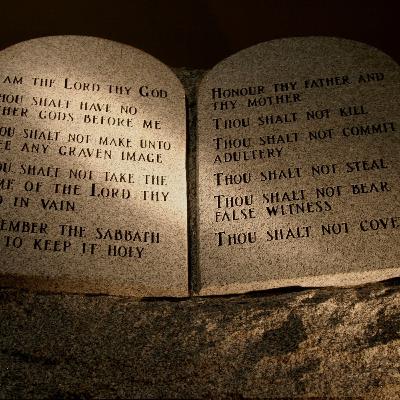 AM THE LORD THY GOD
THOU SHALT HAVE NO
THER GODS BEFORE ME
OU SHALT NOT MAKE UNTO
EE ANY GRAVEN IMAGE
OU SHALT NOT TAKE THE
ME OF THE LORD THY
D IN VAIN
EMBER THE SABBATH
TO KEEP IT HOLY
HONOUR THY FATHER AND
THY MOTHER
THOU SHALT NOT KILL
THOU SHALT NOT COMMIT
ADULTERY
THOU SHALT NOT STEAL
THOU SHALT NOT BEAR
FALSE WITNESS
THOU SHALT NOT COVE